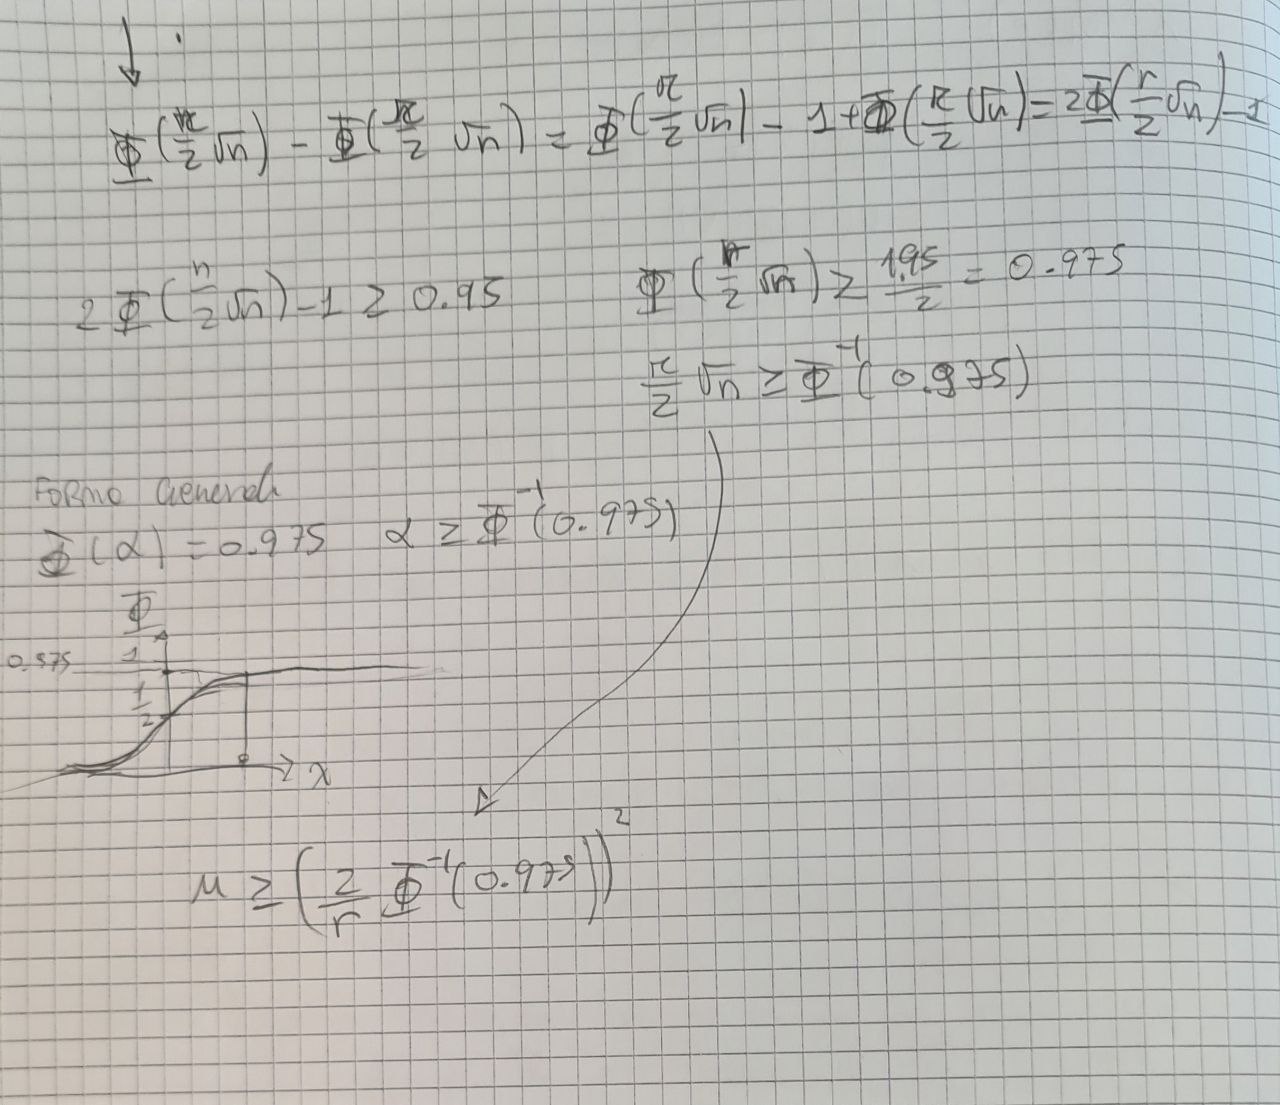 Φ(r/2 √n) - Φ(r/2 √n) = Φ(r/2 √n) - 1 + Φ(r/2 √n) = 2Φ(r/2 √n) - 1
2Φ(n/2 √n) - 1 ≥ 0.95 Φ(r/2 √n) ≥ 1.95/2 = 0.975
r/2 √n ≥ Φ⁻¹(0.975)
FORMA Generale
Φ(α) = 0.975 α ≥ Φ⁻¹(0.975)
Φ
0.975 1
1/2
x
n ≥ (2/r Φ⁻¹(0.975))²